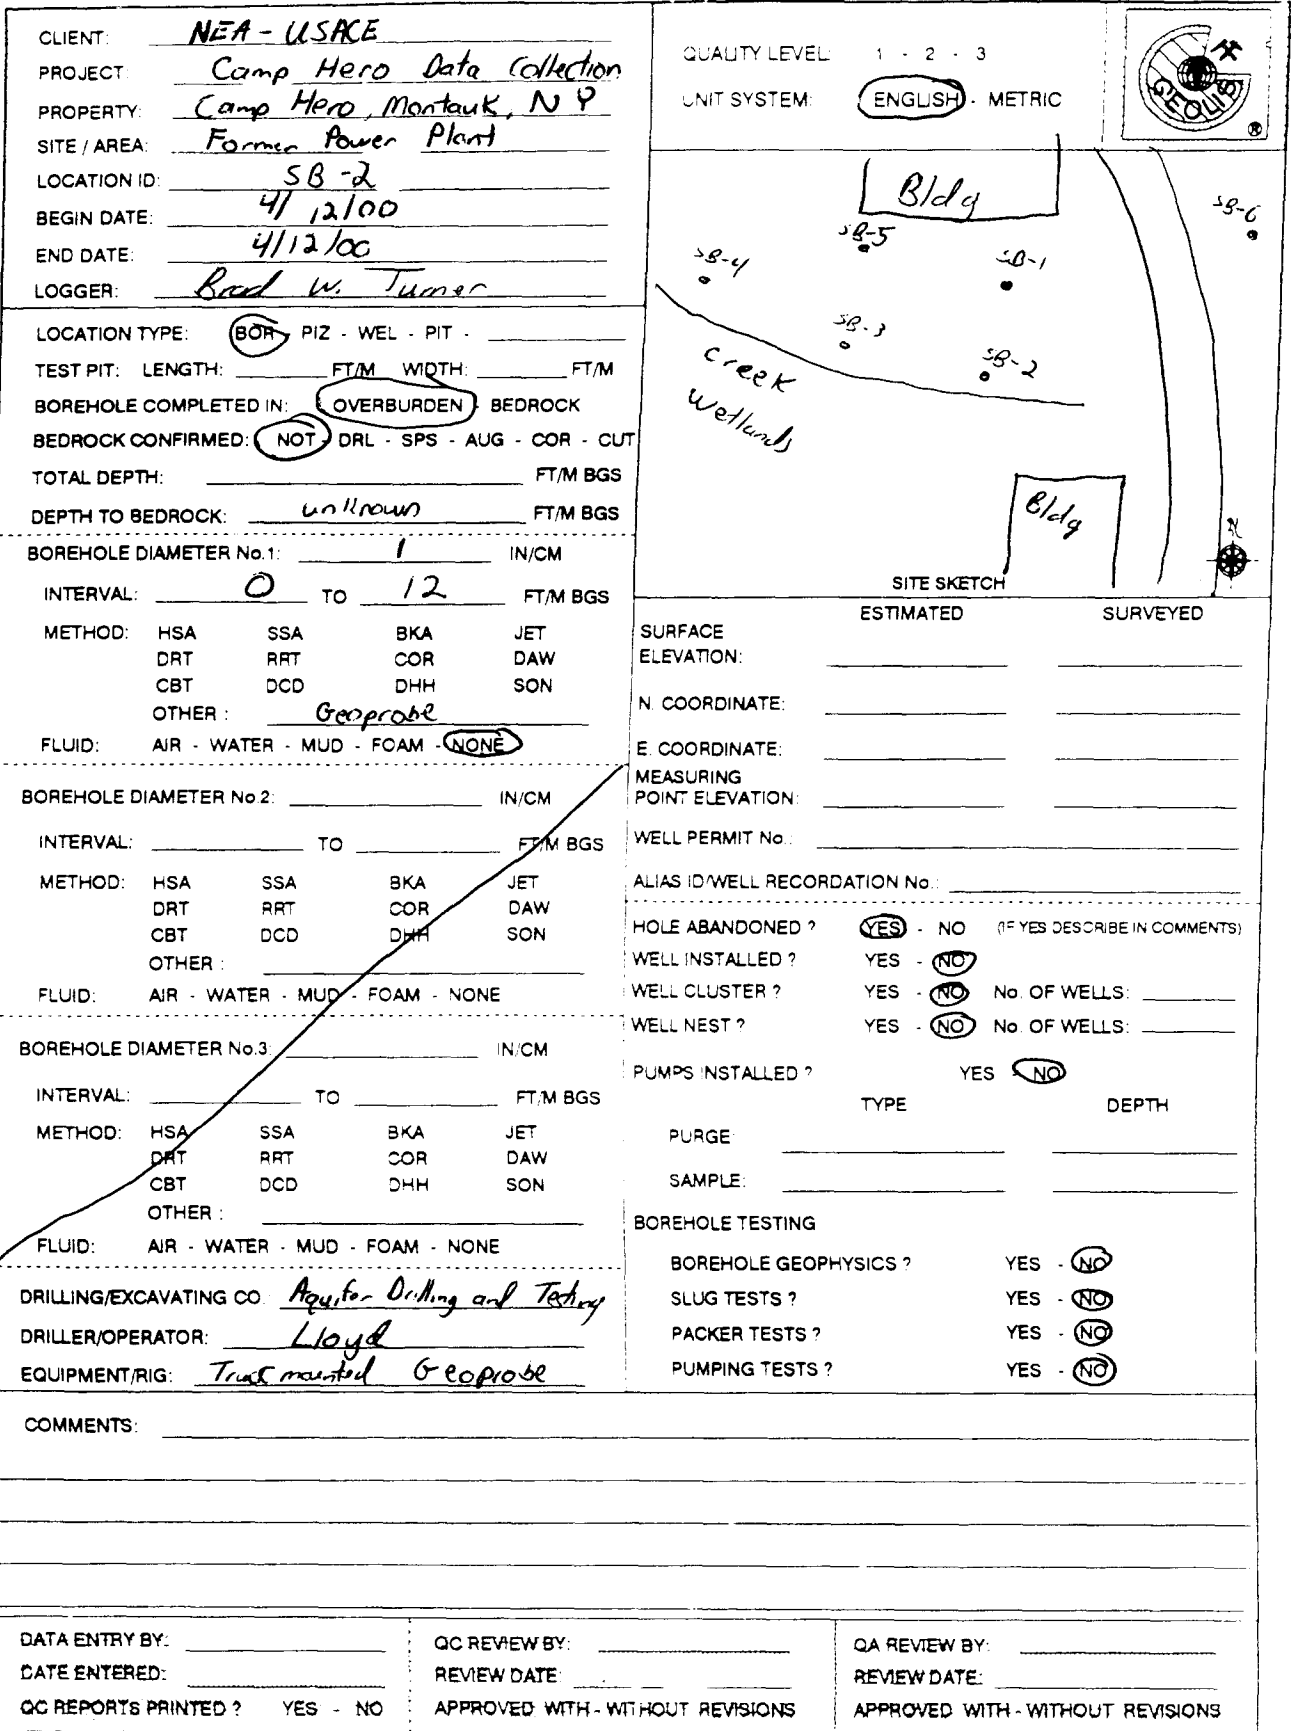 CLIENT: NEA - USACE
PROJECT: Camp Hero Data Collection
PROPERTY: Camp Hero, Montauk, NY
SITE / AREA: Former Power Plant
LOCATION ID: SB-2
BEGIN DATE: 4/12/00
END DATE: 4/12/00
LOGGER: Brad W. Turner
QUALITY LEVEL: 1 - 2 - 3
UNIT SYSTEM: ENGLISH - METRIC
GEOLIS ®
LOCATION TYPE: BOR - PIZ - WEL - PIT -
TEST PIT: LENGTH: FT/M WIDTH: FT/M
BOREHOLE COMPLETED IN: OVERBURDEN - BEDROCK
BEDROCK CONFIRMED: NOT - DRL - SPS - AUG - COR - CUT
TOTAL DEPTH: FT/M BGS
DEPTH TO BEDROCK: unknown FT/M BGS
Bldg
SB-6
SB-5
SB-4
SB-1
SB-3
SB-2
Creek
Wetlands
Bldg
N
SITE SKETCH
BOREHOLE DIAMETER No.1: 1 IN/CM
INTERVAL: 0 TO 12 FT/M BGS
METHOD: HSA SSA BKA JET
DRT RRT COR DAW
CBT DCD DHH SON
OTHER : Geoprobe
FLUID: AIR - WATER - MUD - FOAM - NONE
BOREHOLE DIAMETER No.2: IN/CM
INTERVAL: TO FT/M BGS
METHOD: HSA SSA BKA JET
DRT RRT COR DAW
CBT DCD DHH SON
OTHER :
FLUID: AIR - WATER - MUD - FOAM - NONE
BOREHOLE DIAMETER No.3: IN/CM
INTERVAL: TO FT/M BGS
METHOD: HSA SSA BKA JET
DRT RRT COR DAW
CBT DCD DHH SON
OTHER :
FLUID: AIR - WATER - MUD - FOAM - NONE
DRILLING/EXCAVATING CO. Aquifer Drilling and Testing
DRILLER/OPERATOR: Lloyd
EQUIPMENT/RIG: Truck mounted Geoprobe
ESTIMATED SURVEYED
SURFACE
ELEVATION:
N. COORDINATE:
E. COORDINATE:
MEASURING
POINT ELEVATION:
WELL PERMIT No.:
ALIAS ID/WELL RECORDATION No.:
HOLE ABANDONED ? YES - NO (IF YES DESCRIBE IN COMMENTS)
WELL INSTALLED ? YES - NO
WELL CLUSTER ? YES - NO No. OF WELLS:
WELL NEST ? YES - NO No. OF WELLS:
PUMPS INSTALLED ? YES - NO
TYPE DEPTH
PURGE:
SAMPLE:
BOREHOLE TESTING
BOREHOLE GEOPHYSICS ? YES - NO
SLUG TESTS ? YES - NO
PACKER TESTS ? YES - NO
PUMPING TESTS ? YES - NO
COMMENTS:
DATA ENTRY BY:
DATE ENTERED:
QC REPORTS PRINTED ? YES - NO
QC REVIEW BY:
REVIEW DATE:
APPROVED WITH - WITHOUT REVISIONS
QA REVIEW BY:
REVIEW DATE:
APPROVED WITH - WITHOUT REVISIONS